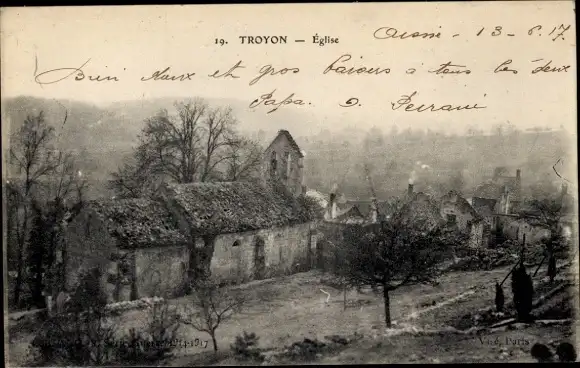 19. TROYON — Église
Aisne - 13-6-17
Bien doux et gros baisers a tous les deux
Papa. D. Perrani
1914-1917
Visé, Paris